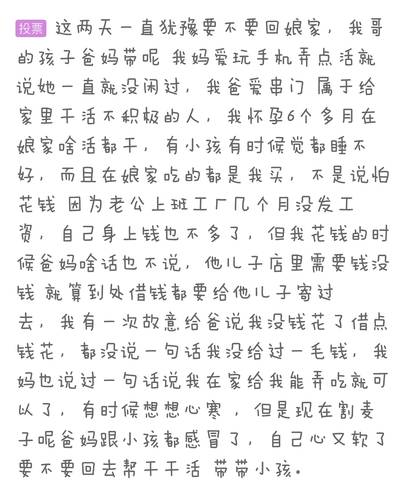 投票 这两天一直犹豫要不要回娘家，我哥
的孩子爸妈带呢 我妈爱玩手机弄点活就
说她一直就没闲过，我爸爱串门 属于给
家里干活不积极的人，我怀孕6个多月在
娘家啥活都干，有小孩有时候觉都睡不
好，而且在娘家吃的都是我买，不是说怕
花钱 因为老公上班工厂几个月没发工
资，自己身上钱也不多了，但我花钱的时
候爸妈啥话也不说，他儿子店里需要钱没
钱 就算到处借钱都要给他儿子寄过
去，我有一次故意给爸说我没钱花了借点
钱花，都没说一句话我没给过一毛钱，我
妈也说过一句话说我在家给我能弄吃就可
以了，有时候想想心寒 ，但是现在割麦
子呢爸妈跟小孩都感冒了，自己心又软了
要不要回去帮干干活 带带小孩。